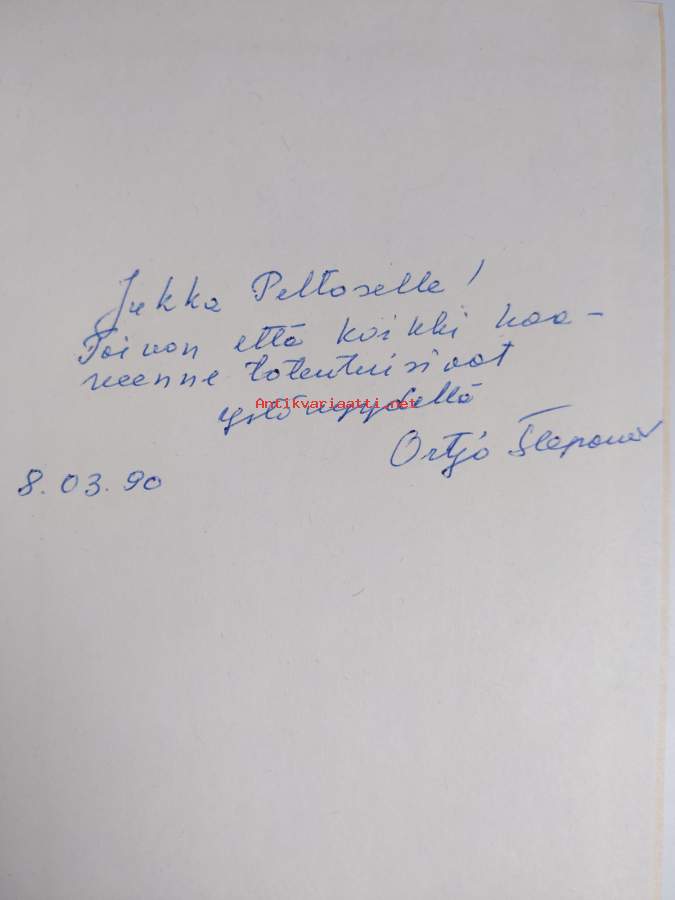 Jukka Peltoselle!
Toivon että kaikki haa-
veenne toteutuisivat
Antikvariaatti.net
ystävyydellä
Ortjo Stepanov
8.03.90